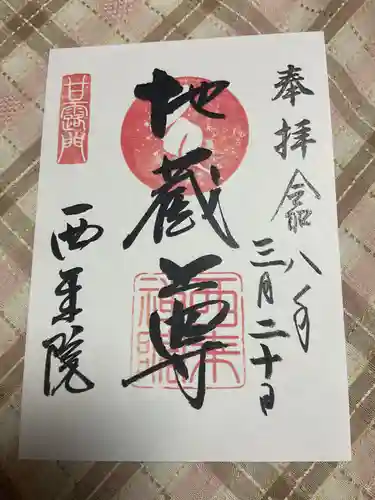 奉拝
令和八年
三月二十日
地蔵尊
甘露門
西来院